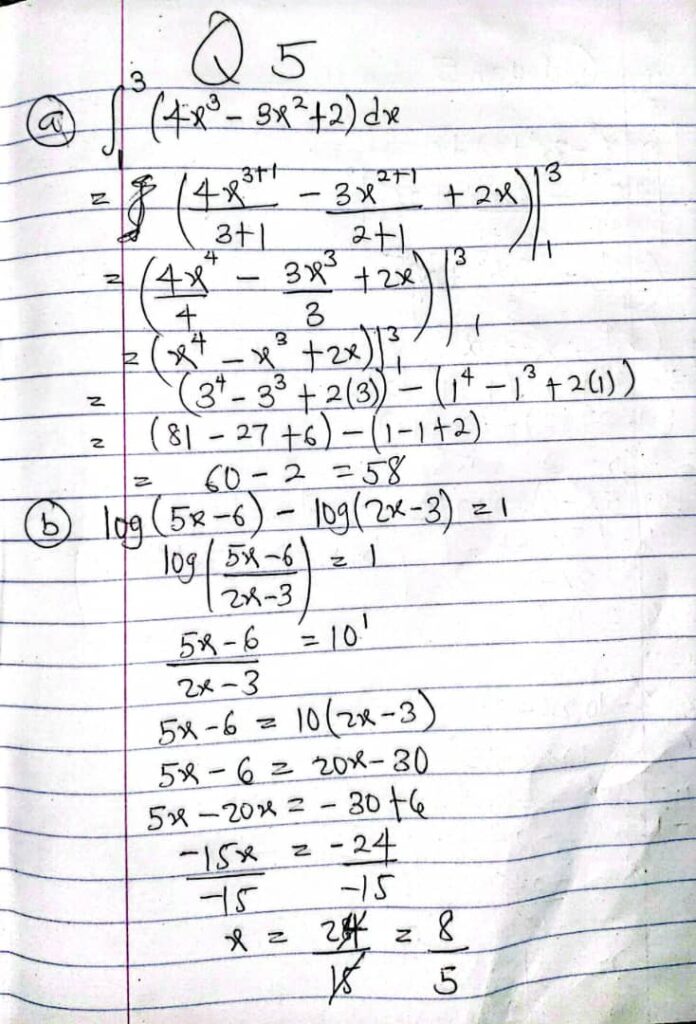 Q 5
(a) ∫₁³ (4x³ - 3x² + 2) dx
= (4x³⁺¹/3+1 - 3x²⁺¹/2+1 + 2x)|₁³
= (4x⁴/4 - 3x³/3 + 2x)|₁³
= (x⁴ - x³ + 2x)|₁³
= (3⁴ - 3³ + 2(3)) - (1⁴ - 1³ + 2(1))
= (81 - 27 + 6) - (1 - 1 + 2)
= 60 - 2 = 58
(b) log(5x - 6) - log(2x - 3) = 1
log(5x - 6/2x - 3) = 1
5x - 6/2x - 3 = 10¹
5x - 6 = 10(2x - 3)
5x - 6 = 20x - 30
5x - 20x = - 30 + 6
-15x/-15 = -24/-15
x = 24/15 = 8/5